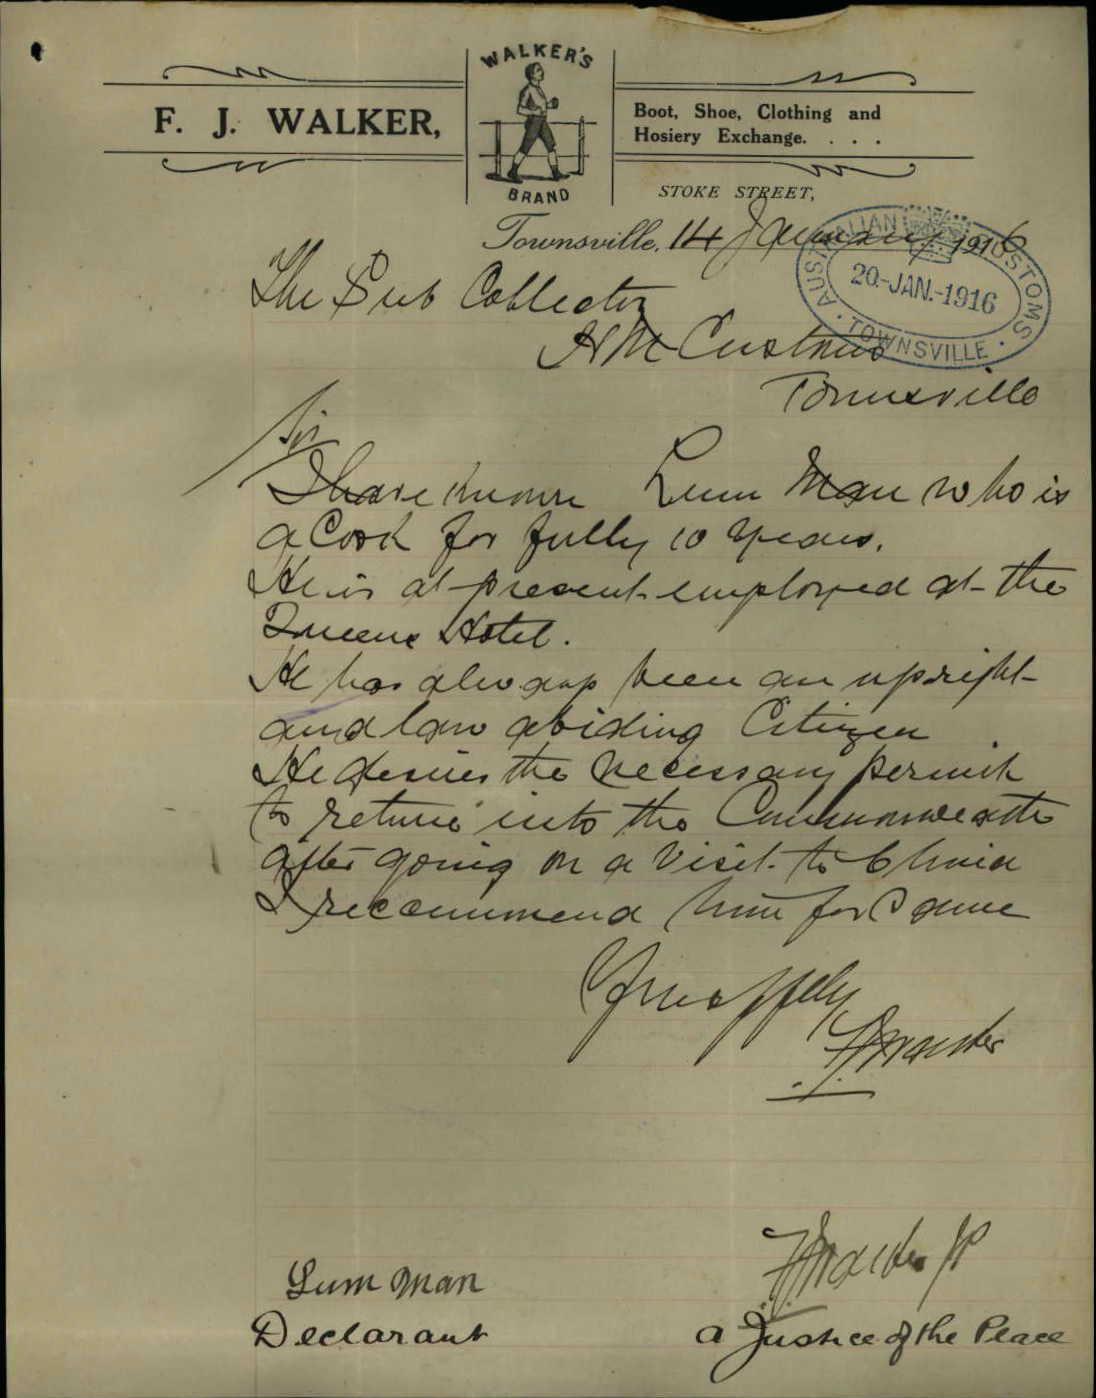 WALKER'S
F. J. WALKER,
BRAND
Boot, Shoe, Clothing and
Hosiery Exchange. . . .
STOKE STREET,
Townsville, 14 January 1916
AUSTRALIAN CUSTOMS
20-JAN.-1916
TOWNSVILLE
The Sub Collector
H M Customs
Townsville
Sir
I have known Lum Man who is
a Cook for fully 10 years.
He is at present employed at the
Queens Hotel.
He has always been an upright
and law abiding Citizen
He desires the necessary permit
to return into the Commonwealth
after going on a visit to China
I recommend him for same
Yours ffly
Lum Man
JP
Declarant
a Justice of the Peace